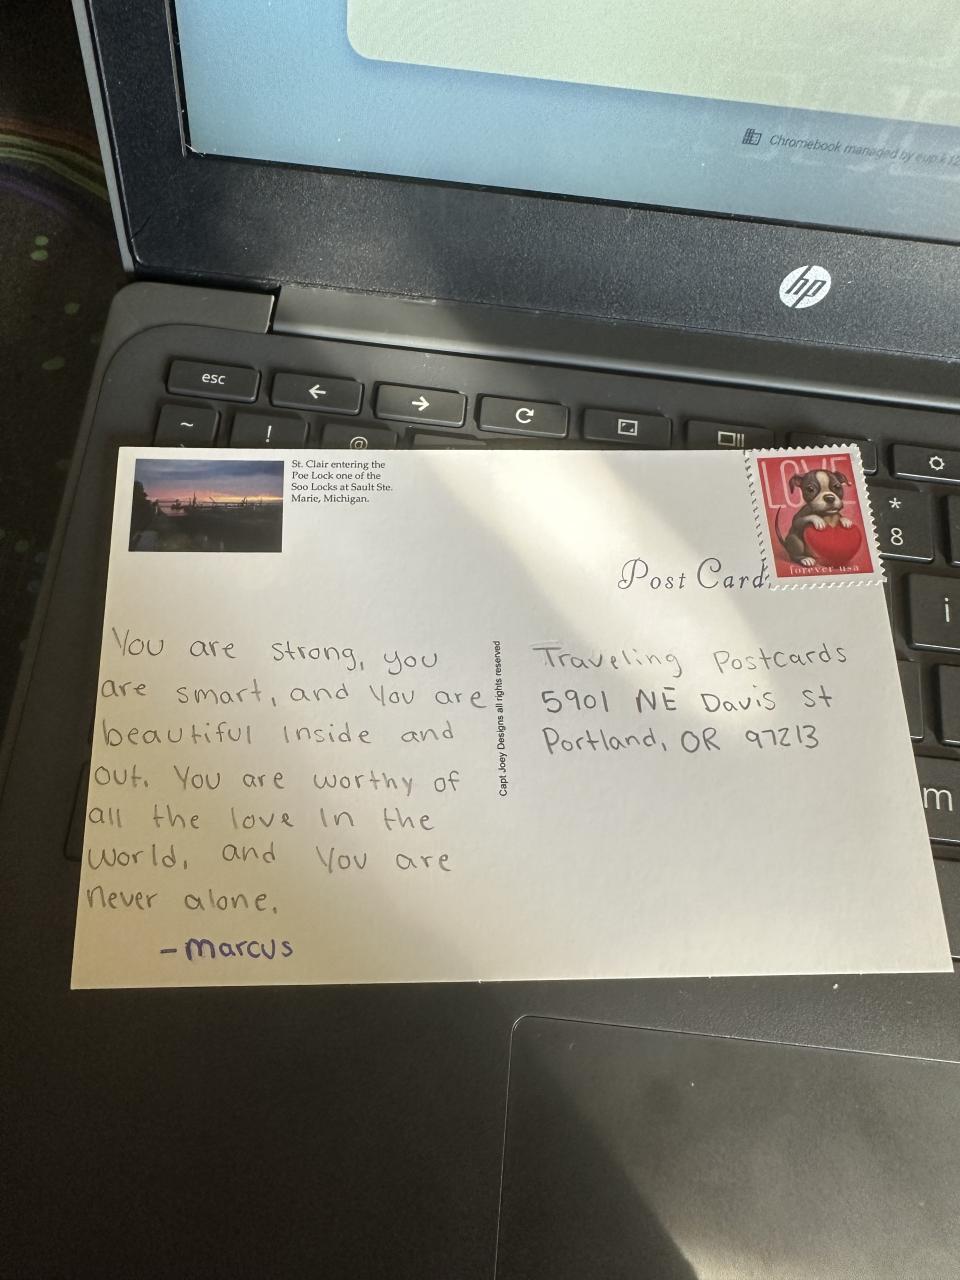 Chromebook managed by eup.k12
hp
esc
~
!
@
*
8
i
m
St. Clair entering the
Poe Lock one of the
Soo Locks at Sault Ste.
Marie, Michigan.
LOVE
forever usa
Post Card
You are strong, you
are smart, and you are
beautiful inside and
out. You are worthy of
all the love in the
world, and you are
never alone.
- marcus
Capt Joey Designs all rights reserved
Traveling Postcards
5901 NE Davis St
Portland, OR 97213